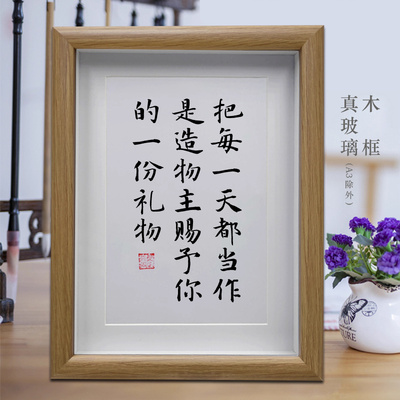 把每一天都当作
是造物主赐予你
的一份礼物
木框
真玻璃(A3除外)